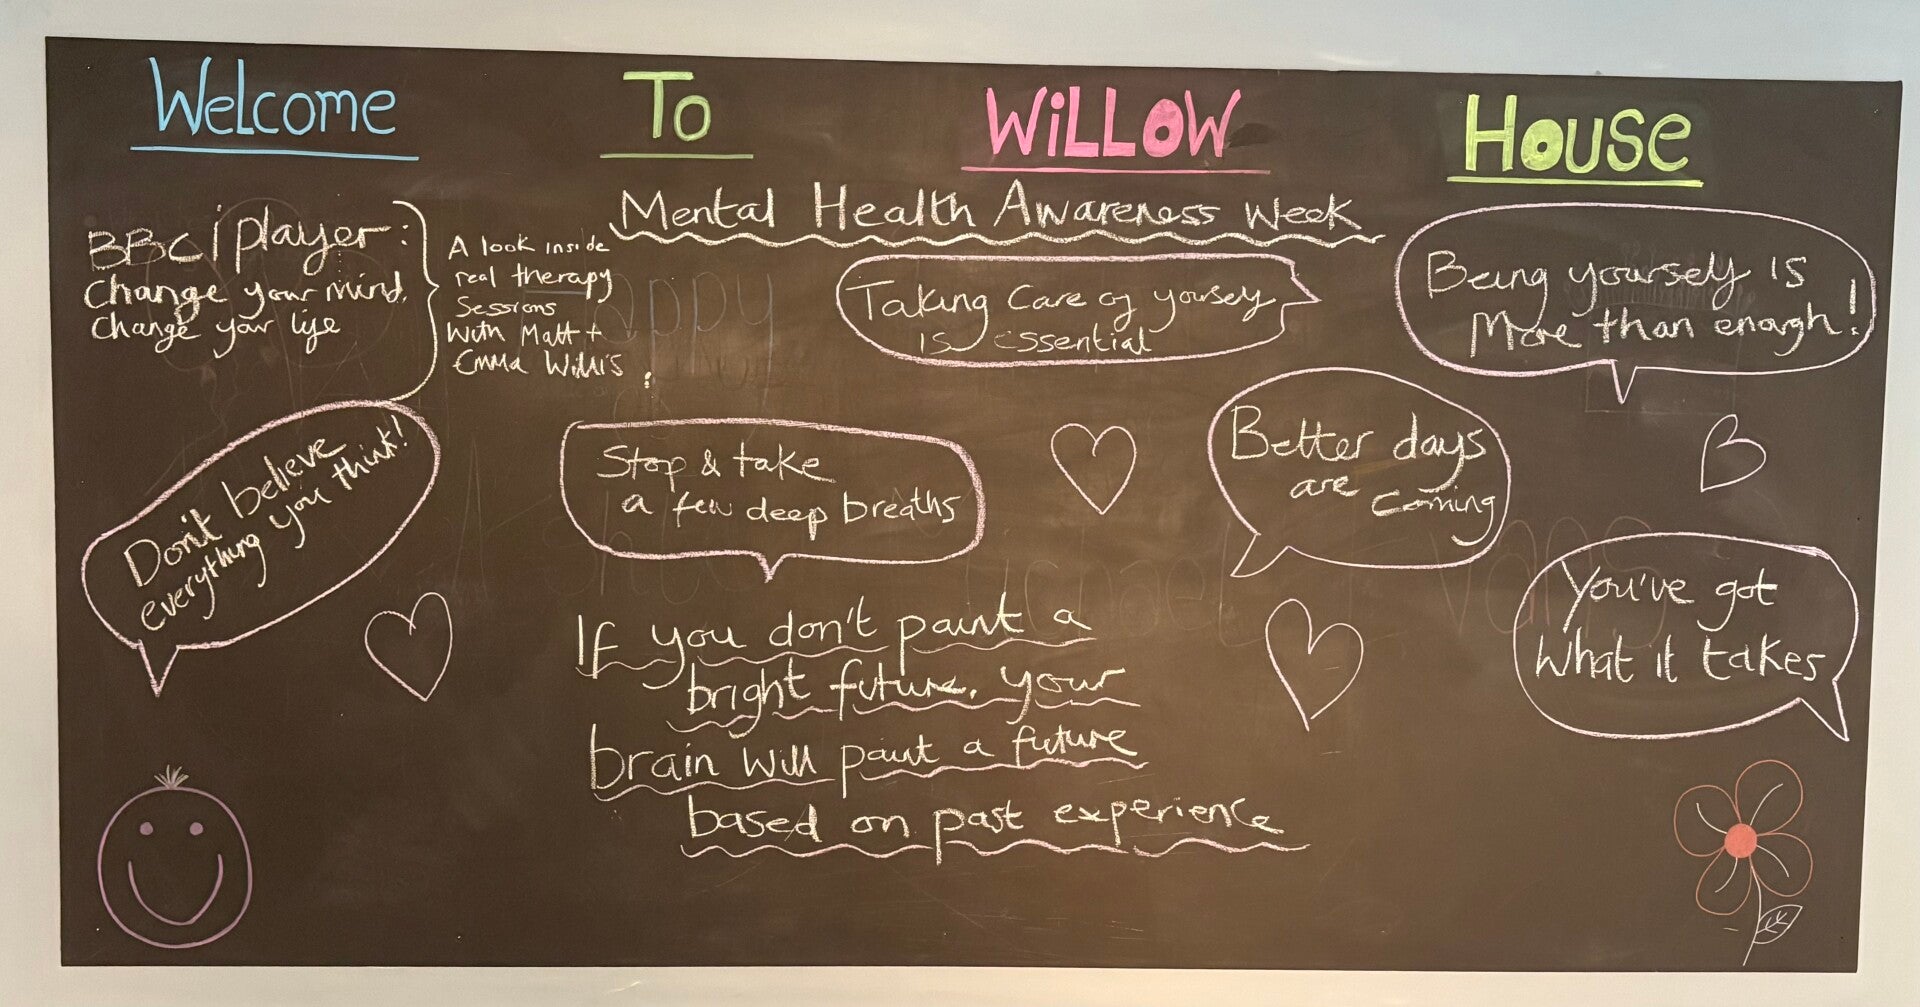 Welcome To WiLLOW House
Mental Health Awareness Week
BBC iplayer:
Change your mind,
Change your life
A look inside
real therapy
Sessions
With Matt +
Emma Willis
Taking Care of yourself
is essential
Being yourself is
More than enough!
Don't believe
everything you think!
Stop & take
a few deep breaths
Better days
are coming
You've got
What it takes
If you don't paint a
bright future, your
brain will paint a future
based on past experience